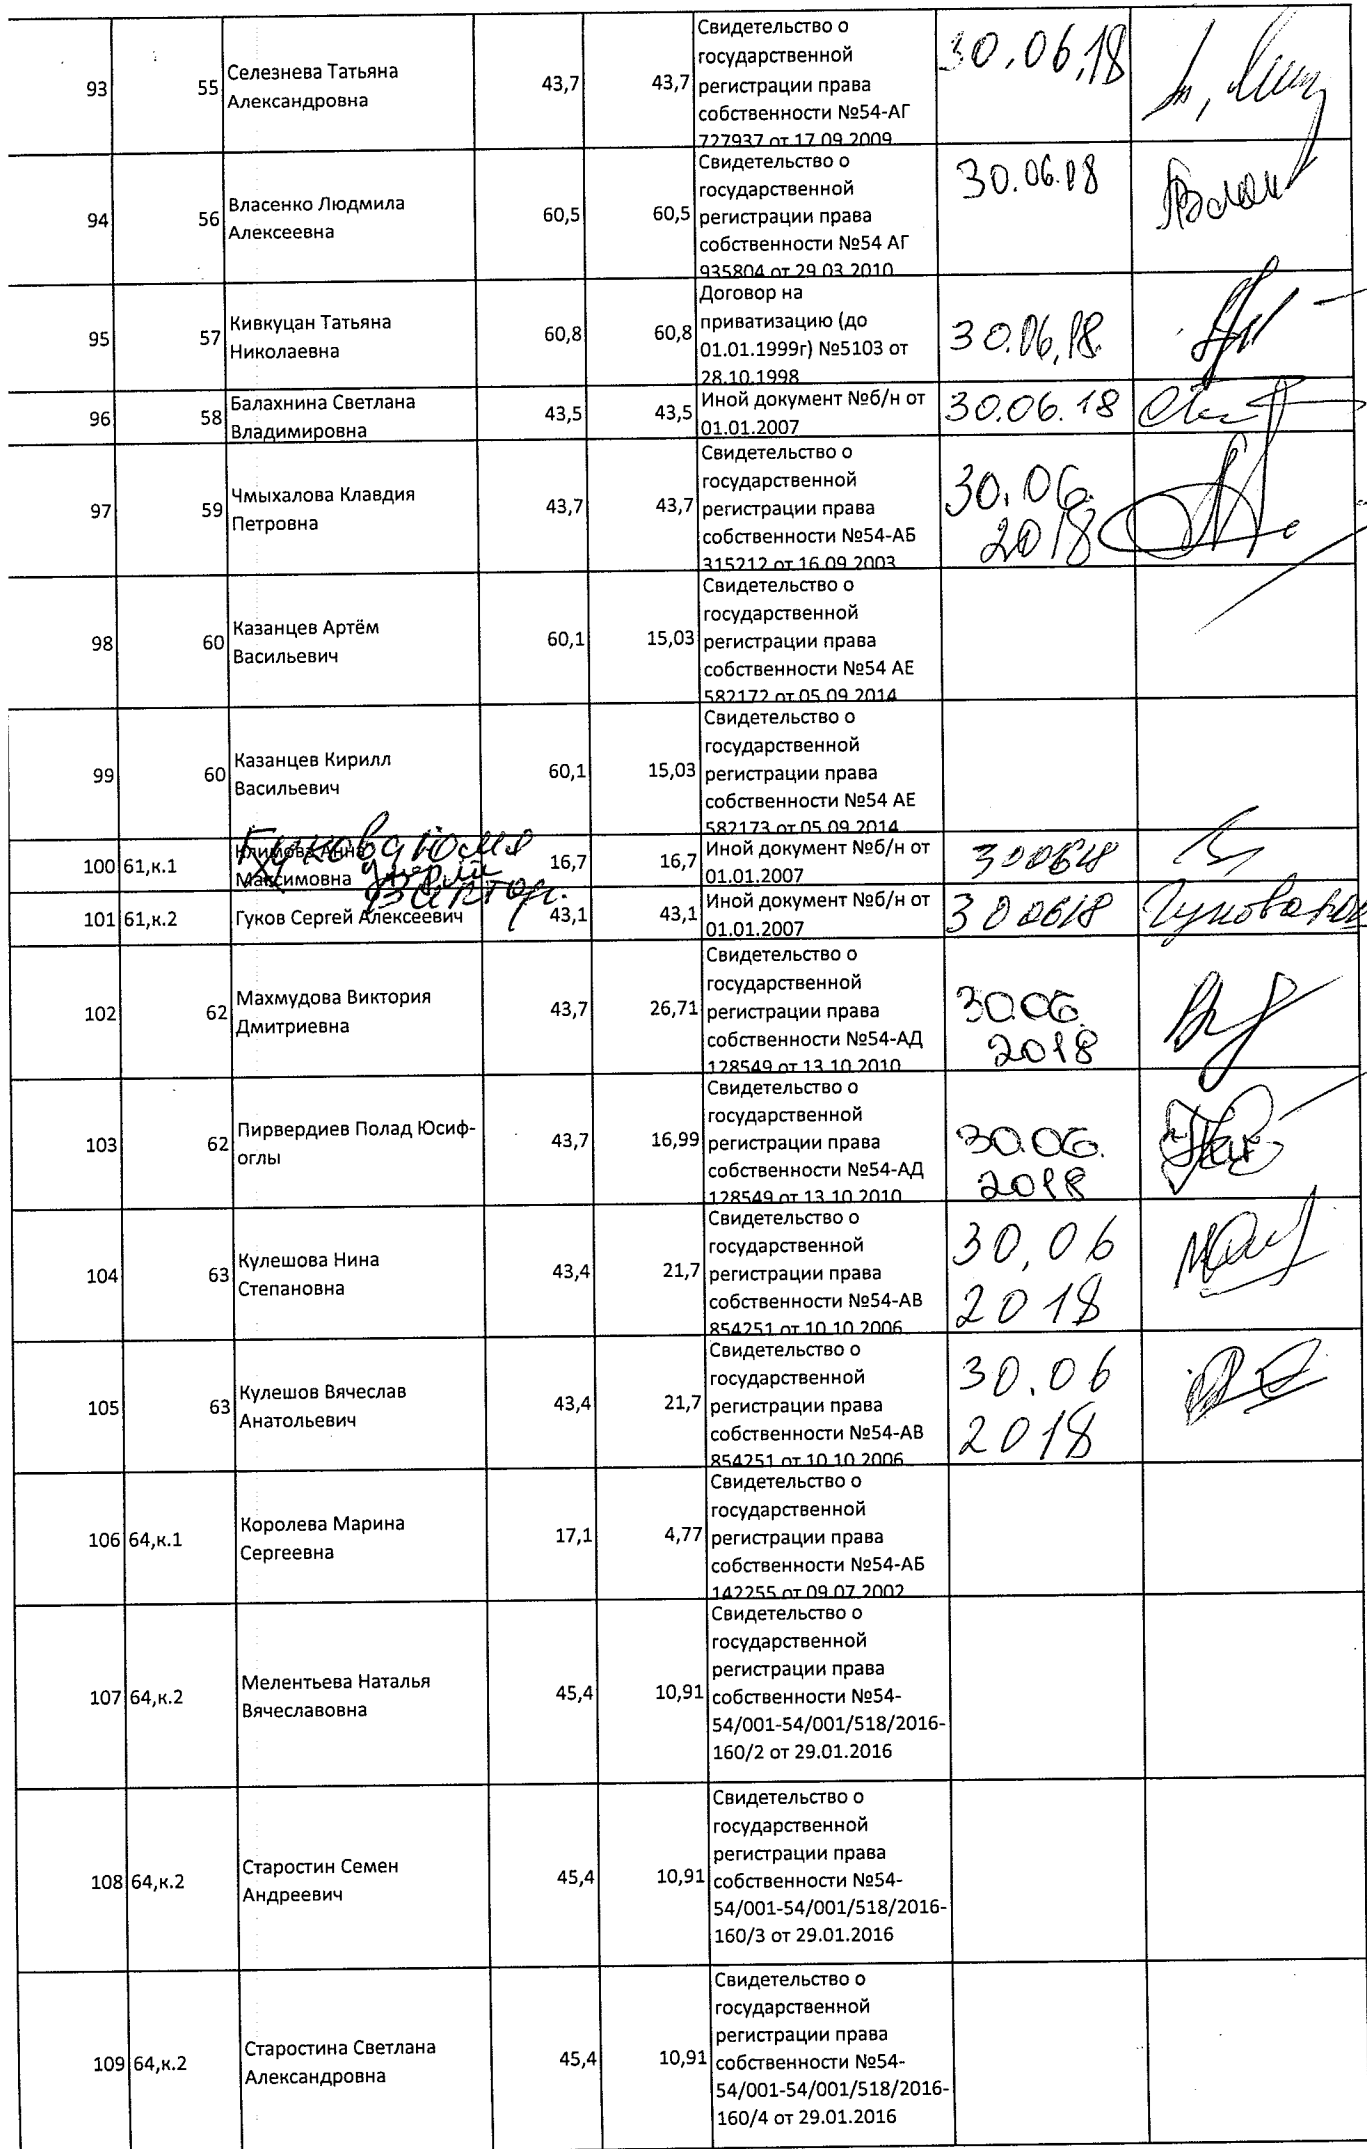 93 55 Селезнева Татьяна Александровна 43,7 43,7 Свидетельство о
государственной
регистрации права
собственности №54-АГ
727937 от 17.09.2009
30.06.18
94 56 Власенко Людмила Алексеевна 60,5 60,5 Свидетельство о
государственной
регистрации права
собственности №54 АГ
935804 от 29.03.2010
30.06.18
95 57 Кивкуцан Татьяна Николаевна 60,8 60,8 Договор на
приватизацию (до
01.01.1999г) №5103 от
28.10.1998
30.06.18.
96 58 Балахнина Светлана Владимировна 43,5 43,5 Иной документ №б/н от
01.01.2007
30.06.18
97 59 Чмыхалова Клавдия Петровна 43,7 43,7 Свидетельство о
государственной
регистрации права
собственности №54-АБ
315212 от 16.09.2003
30.06.
2018
98 60 Казанцев Артём Васильевич 60,1 15,03 Свидетельство о
государственной
регистрации права
собственности №54 АЕ
582172 от 05.09.2014
99 60 Казанцев Кирилл Васильевич 60,1 15,03 Свидетельство о
государственной
регистрации права
собственности №54 АЕ
582173 от 05.09.2014
100 61,к.1 Климова Анна Максимовна 16,7 16,7 Иной документ №б/н от
01.01.2007
300618
101 61,к.2 Гуков Сергей Алексеевич 43,1 43,1 Иной документ №б/н от
01.01.2007
300618
102 62 Махмудова Виктория Дмитриевна 43,7 26,71 Свидетельство о
государственной
регистрации права
собственности №54-АД
128549 от 13.10.2010
30.06.
2018
103 62 Пирвердиев Полад Юсиф-оглы 43,7 16,99 Свидетельство о
государственной
регистрации права
собственности №54-АД
128549 от 13.10.2010
30.06.
2018
104 63 Кулешова Нина Степановна 43,4 21,7 Свидетельство о
государственной
регистрации права
собственности №54-АВ
854251 от 10.10.2006
30.06
2018
105 63 Кулешов Вячеслав Анатольевич 43,4 21,7 Свидетельство о
государственной
регистрации права
собственности №54-АВ
854251 от 10.10.2006
30.06
2018
106 64,к.1 Королева Марина Сергеевна 17,1 4,77 Свидетельство о
государственной
регистрации права
собственности №54-АБ
142255 от 09.07.2002
107 64,к.2 Мелентьева Наталья Вячеславовна 45,4 10,91 Свидетельство о
государственной
регистрации права
собственности №54-
54/001-54/001/518/2016-
160/2 от 29.01.2016
108 64,к.2 Старостин Семен Андреевич 45,4 10,91 Свидетельство о
государственной
регистрации права
собственности №54-
54/001-54/001/518/2016-
160/3 от 29.01.2016
109 64,к.2 Старостина Светлана Александровна 45,4 10,91 Свидетельство о
государственной
регистрации права
собственности №54-
54/001-54/001/518/2016-
160/4 от 29.01.2016